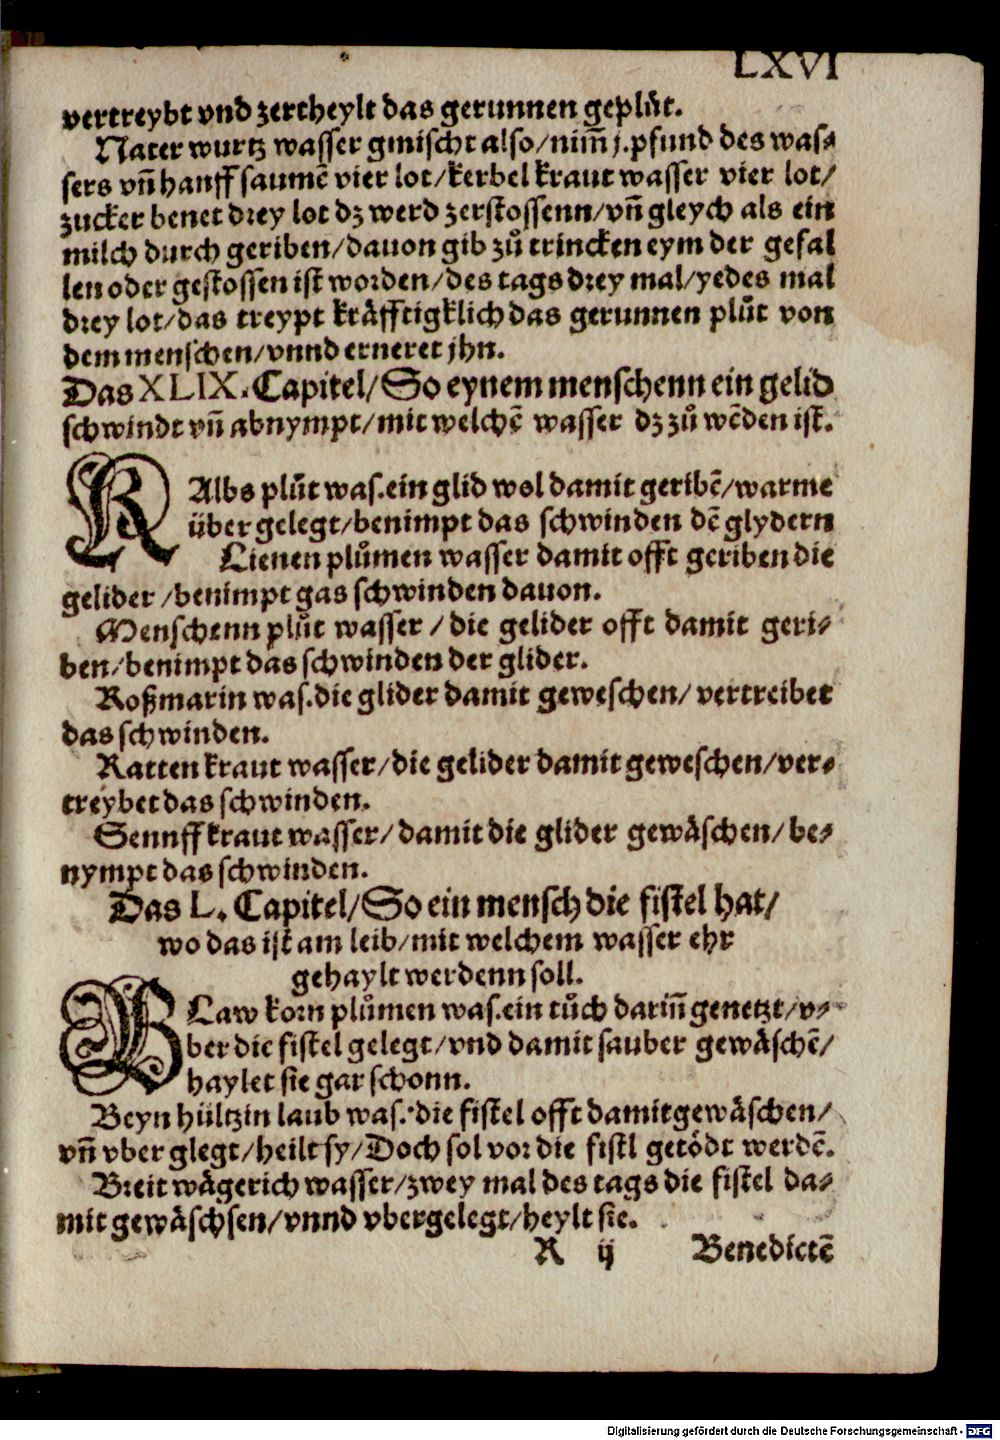 LXVI
vertreybt vnd zertheylt das gerunnen geplůt.
Nater wurtz wasser gmischt also/nim̃ j.pfund des was⸗
sers vñ hanff saumẽ vier lot/kerbel kraut wasser vier lot/
zucker benet drey lot dz werd zerstossenn/vñ gleych als ein
milch durch geriben/dauon gib zů trincken eym der gefal
len oder gestossen ist worden/des tags drey mal/yedes mal
drey lot/das treypt kräfftigklich das gerunnen plůt von
dem menschen/vnnd erneret jhn.
Das XLIX. Capitel/So eynem menschenn ein gelid
schwindt vñ abnympt/mit welchẽ wasser dz zů wẽden ist.
KAlbs plůt was.ein glid wol damit geribẽ/warme
über gelegt/benimpt das schwinden dẽ glydern
Lienen plůmen wasser damit offt geriben die
gelider /benimpt gas schwinden dauon.
Menschenn plůt wasser / die gelider offt damit geri⸗
ben/benimpt das schwinden der glider.
Roßmarin was.die glider damit geweschen/ vertreibet
das schwinden.
Ratten kraut wasser/die gelider damit geweschen/ver⸗
treybet das schwinden.
Sennff kraut wasser/damit die glider gewäschen/be⸗
nympt das schwinden.
Das L. Capitel/So ein mensch die fistel hat/
wo das ist am leib/mit welchem wasser ehr
gehaylt werdenn soll.
BLaw korn plůmen was.ein tůch darin̄ genetzt/v⸗
ber die fistel gelegt/vnd damit sauber gewäschẽ/
haylet sie gar schonn.
Beyn hültzin laub was. die fistel offt damit gewäschen/
vñ vber glegt/heilt sy/Doch sol vor die fistl getödt werdẽ.
Breit wägerich wasser/zwey mal des tags die fistel da⸗
mit gewäschsen/vnnd vbergelegt/heylt sie.
R ij Benedictẽ
Digitalisierung gefördert durch die Deutsche Forschungsgemeinschaft - DFG